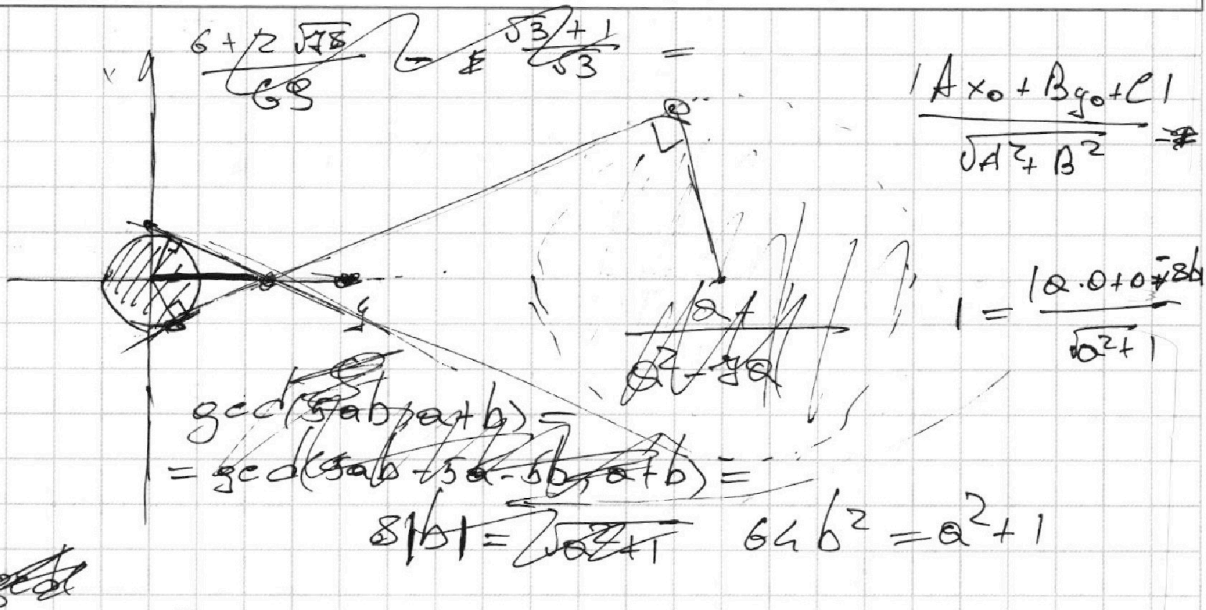 6 + 12 √78 / 69 - √3 + 1 / √3 =
|Ax₀ + By₀ + C| / √A² + B² =
1 = |a·0 + 0 - 8b| / √a² + 1
a + / a² - 7a
gcd(5ab, a+b) =
= gcd(5ab - 5a - 5b, a+b) =
8|b| = √a² + 1 64b² = a² + 1
gcd